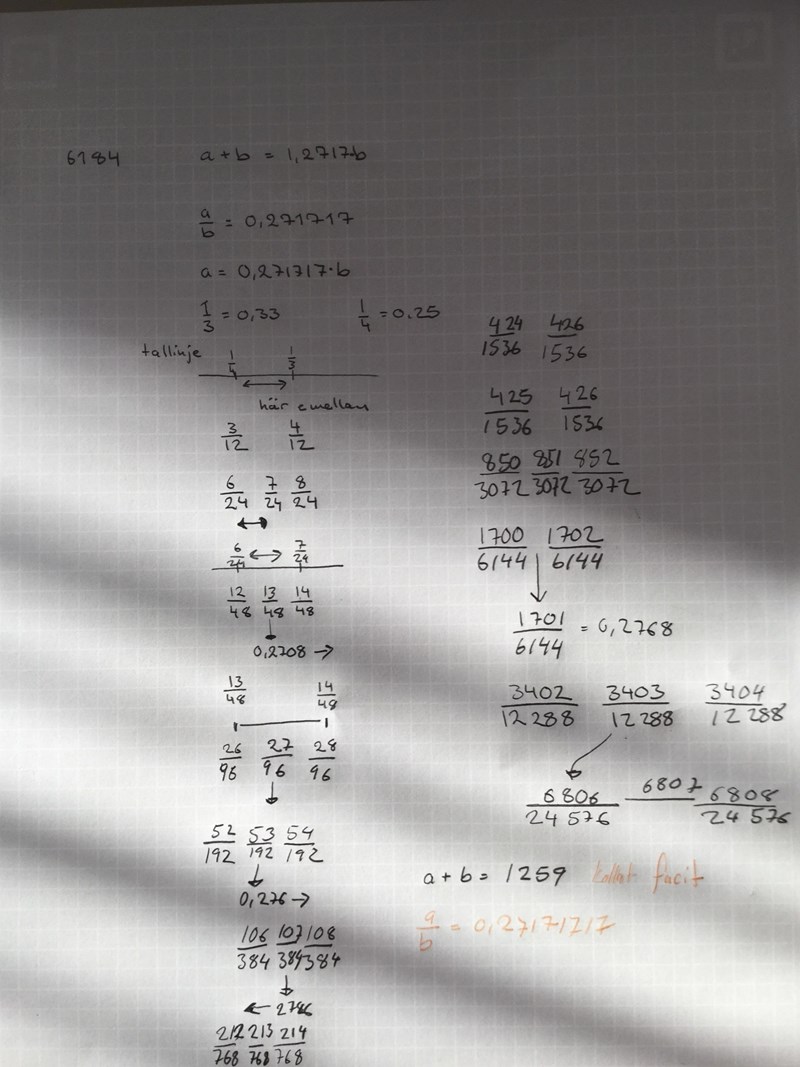 6184
a + b = 1,2717b
a/b = 0,271717
a = 0,271717·b
1/3 = 0,33 1/4 = 0.25
tallinje 1/4 1/3
här emellan
3/12 4/12
6/24 7/24 8/24
6/24 ↔ 7/24
12/48 13/48 14/48
0,2708 →
13/48 14/48
26/96 27/96 28/96
52/192 53/192 54/192
0,276 →
106/384 107/384 108/384
← 2786
212/768 213/768 214/768
424/1536 426/1536
425/1536 426/1536
850/3072 851/3072 852/3072
1700/6144 1702/6144
1701/6144 = 0,2768
3402/12288 3403/12288 3404/12288
6806/24576 6807 6808/24576
a + b = 1259 kollat facit
a/b = 0,27171717